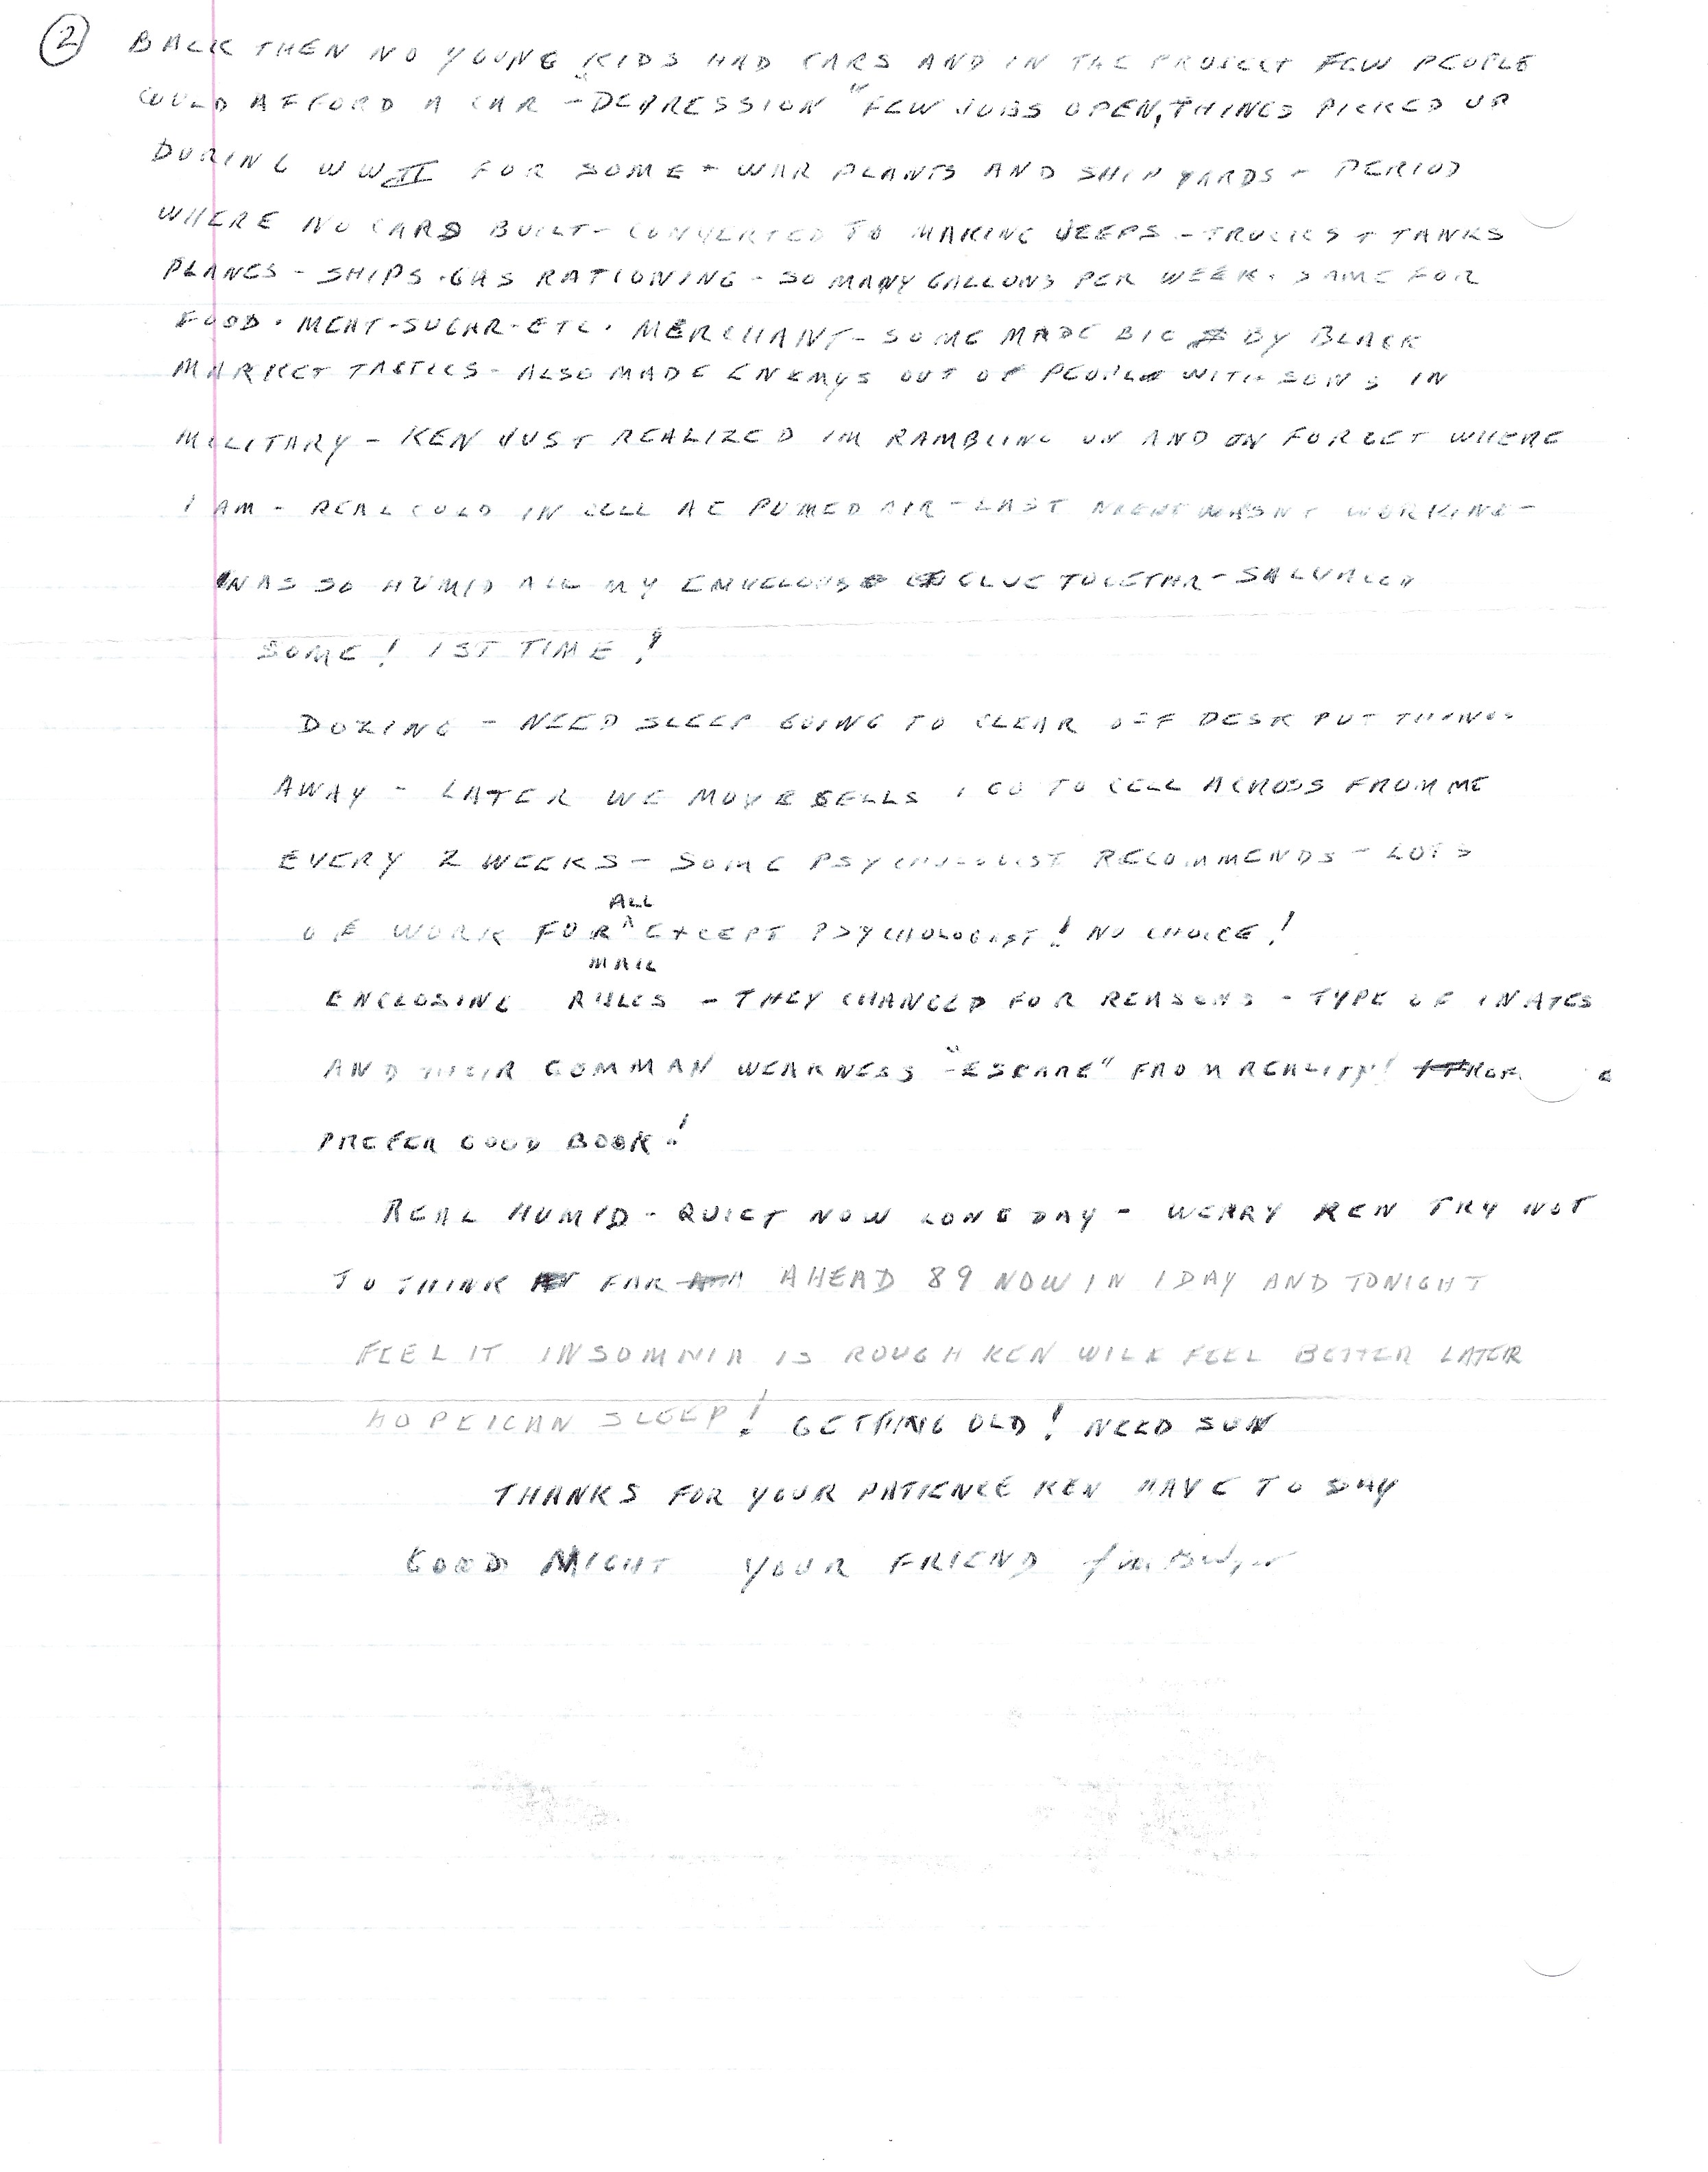 ② BACK THEN NO YOUNG KIDS HAD CARS AND IN THE PROJECT FEW PEOPLE
COULD AFFORD A CAR - "DEPRESSION" FEW JOBS OPEN, THINGS PICKED UP
DURING WW II FOR SOME - WAR PLANTS AND SHIP YARDS - PERIOD
WHERE NO CARS BUILT - CONVERTED TO MAKING JEEPS - TRUCKS + TANKS
PLANES - SHIPS . GAS RATIONING - SO MANY GALLONS PER WEEK . SAME FOR
FOOD . MEAT - SUGAR - ETC . MERCHANT - SOME MADE BIG $ BY BLACK
MARKET TACTICS - ALSO MADE ENEMYS OUT OF PEOPLE WITH SONS IN
MILITARY - KEN JUST REALIZED IM RAMBLING ON AND ON FORGET WHERE
I AM - REAL COLD IN CELL AC PUMED AIR - LAST NIGHT WASNT WORKING -
WAS SO HUMID ALL MY ENVELOUSE GLUE TOGETHR - SALVAGED
SOME! 1ST TIME!
DOZING - NEED SLEEP GOING TO CLEAR OFF DESK PUT THINGS
AWAY - LATER WE MOVE CELLS I GO TO CELL ACROSS FROM ME
EVERY 2 WEEKS - SOME PSYCHOLOGIST RECOMMENDS - LOTS
OF WORK FOR ALL EXCEPT PSYCHOLOGIST! NO CHOICE!
ENCLOSING MAIL RULES - THEY CHANGED FOR REASONS - TYPE OF INATES
AND THEIR COMMAN WEAKNESS - "ESCAPE" FROM REALITY!
PREFER GOOD BOOK!
REAL HUMID - QUIET NOW LONG DAY - WEARY KEN TRY NOT
TO THINK FAR AHEAD 89 NOW IN 1 DAY AND TONIGHT
FEEL IT INSOMNIA IS ROUGH KEN WILL FEEL BETTER LATER
HOPE I CAN SLEEP! GETTING OLD! NEED SUN
THANKS FOR YOUR PATIENCE KEN HAVE TO SAY
GOOD NIGHT YOUR FRIEND